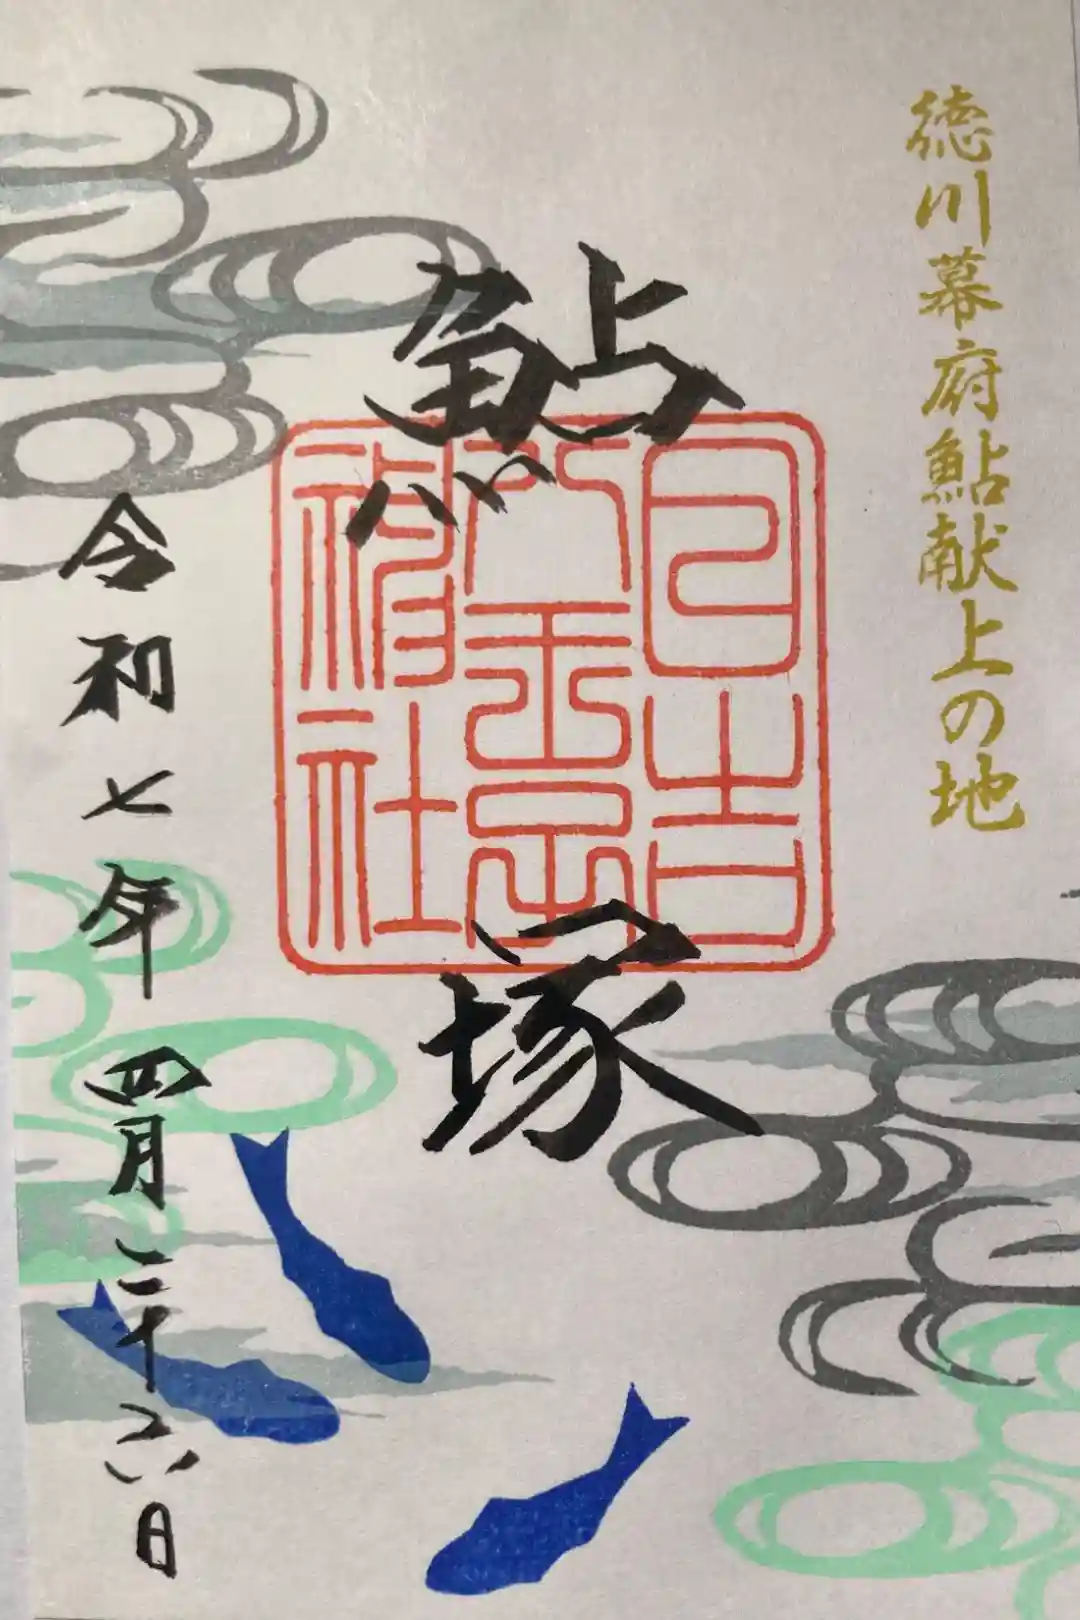 徳川幕府鮎献上の地
鮎塚
日吉
八王子
神社
令和七年四月二十六日